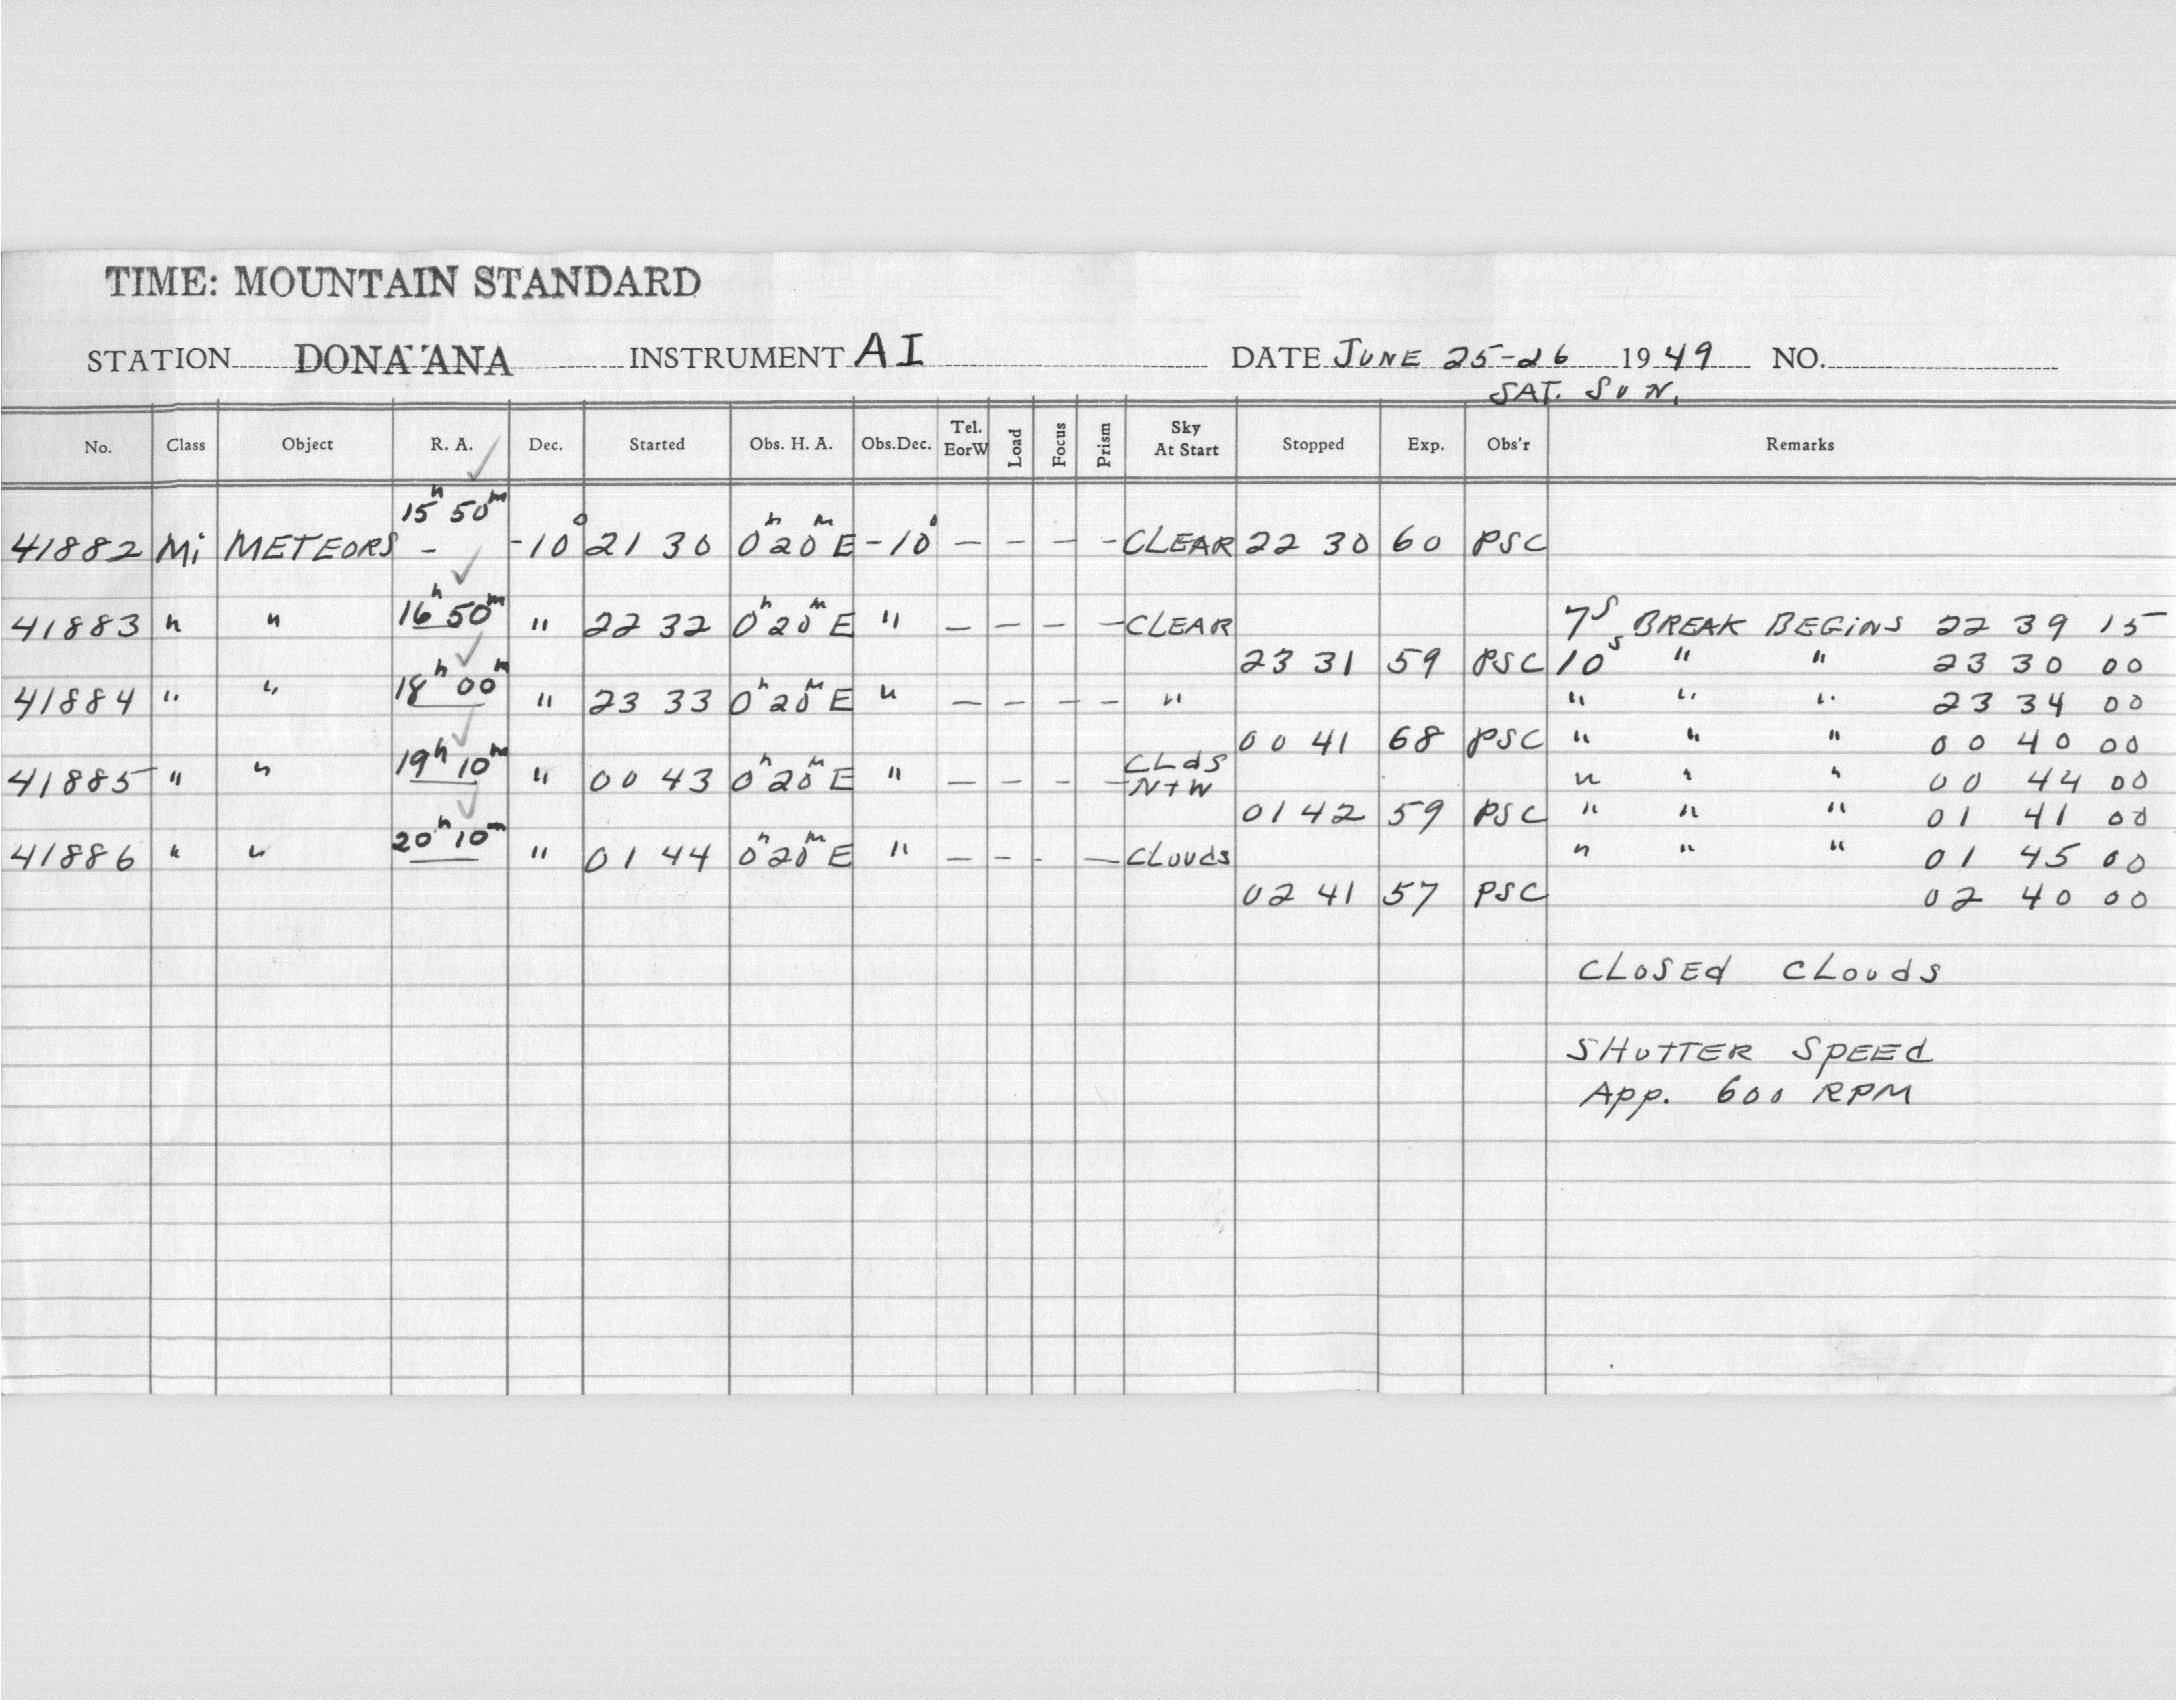 TIME: MOUNTAIN STANDARD
STATION DONA ANA INSTRUMENT AI DATE JUNE 25-26 1949 NO.
SAT. SUN.
No. Class Object R. A. Dec. Started Obs. H. A. Obs.Dec. Tel. EorW Load Focus Prism Sky At Start Stopped Exp. Obs'r Remarks
41882 Mi METEORS 15h 50m - -10° 21 30 0h 20M E -10° - - - - CLEAR 22 30 60 PSC
41883 " " 16h 50m " 22 32 0h 20M E " - - - - CLEAR 7s BREAK BEGINS 22 39 15
23 31 59 PSC 10s " " 23 30 00
41884 " " 18h 00m " 23 33 0h 20M E " - - - - " " " " 23 34 00
00 41 68 PSC " " " 00 40 00
41885 " " 19h 10m " 00 43 0h 20M E " - - - - CLdS N+W " " " 00 44 00
01 42 59 PSC " " " 01 41 00
41886 " " 20h 10m " 01 44 0h 20M E " - - - - CLouds " " " 01 45 00
02 41 57 PSC 02 40 00
CLOSEd CLouds
SHUTTER SPEEd
App. 600 RPM